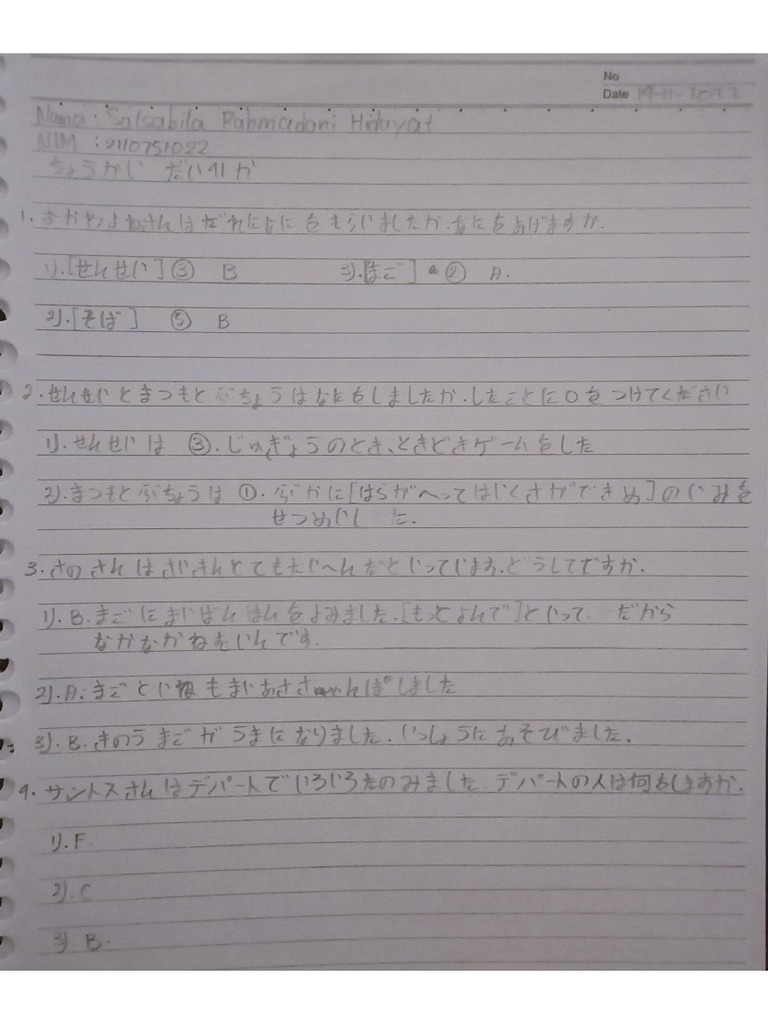 No
Date 14-11-2022
Nama : Salsabila Rahmadani Hidayat
NIM : 2110751022
ちょうかい だい41か
1. おがわよねさんはだれになにをもらいましたか.なにをあげますか.
1). [せんせい] ③ B 3). [まご] ② A.
2). [そば] ⑤ B
2. せんせいとまつもとぶちょうはなにをしましたか.したことに○をつけてください
1). せんせいは ③. じゅぎょうのとき、ときどきゲームをした
2). まつもとぶちょうは ①. ぶかに[はらがへってはいくさができぬ]のいみを
せつめいし た.
3. さのさんはさいきんとてもたいへんだといっています.どうしてですか.
1). B. まごにまいばんほんをよみました. [もっとよんで]といって. だから
なかなかねないんです.
2). A: まごといぬもまいあささんぽしました
3). B. きのうまごがうまになりました. いっしょうにあそびました.
4. サントスさんはデパートでいろいろたのみました. デパートの人は何をしますか.
1). F
2). C
3). B.